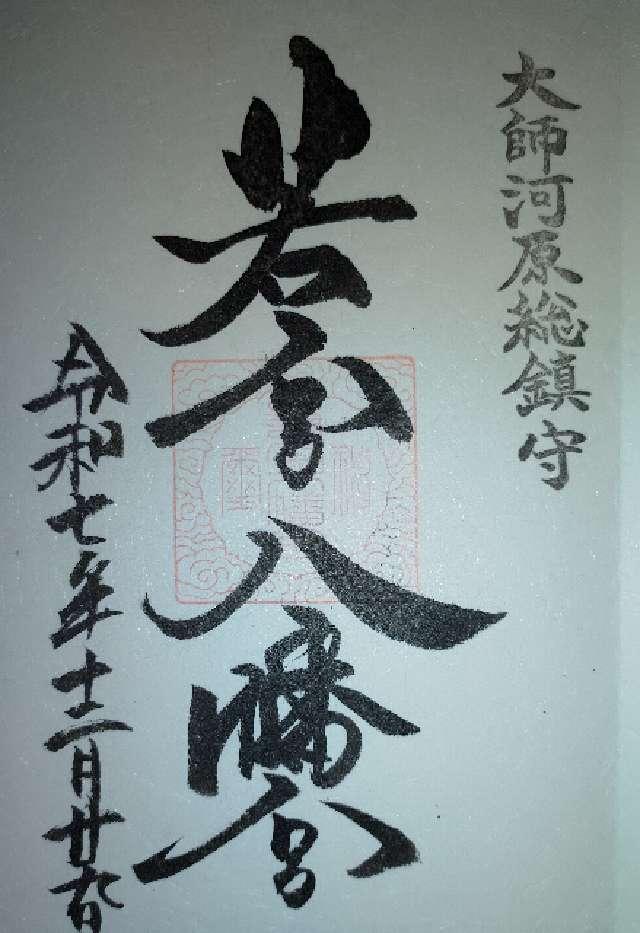 大師河原総鎮守
若宮八幡宮
令和七年十二月廿九日